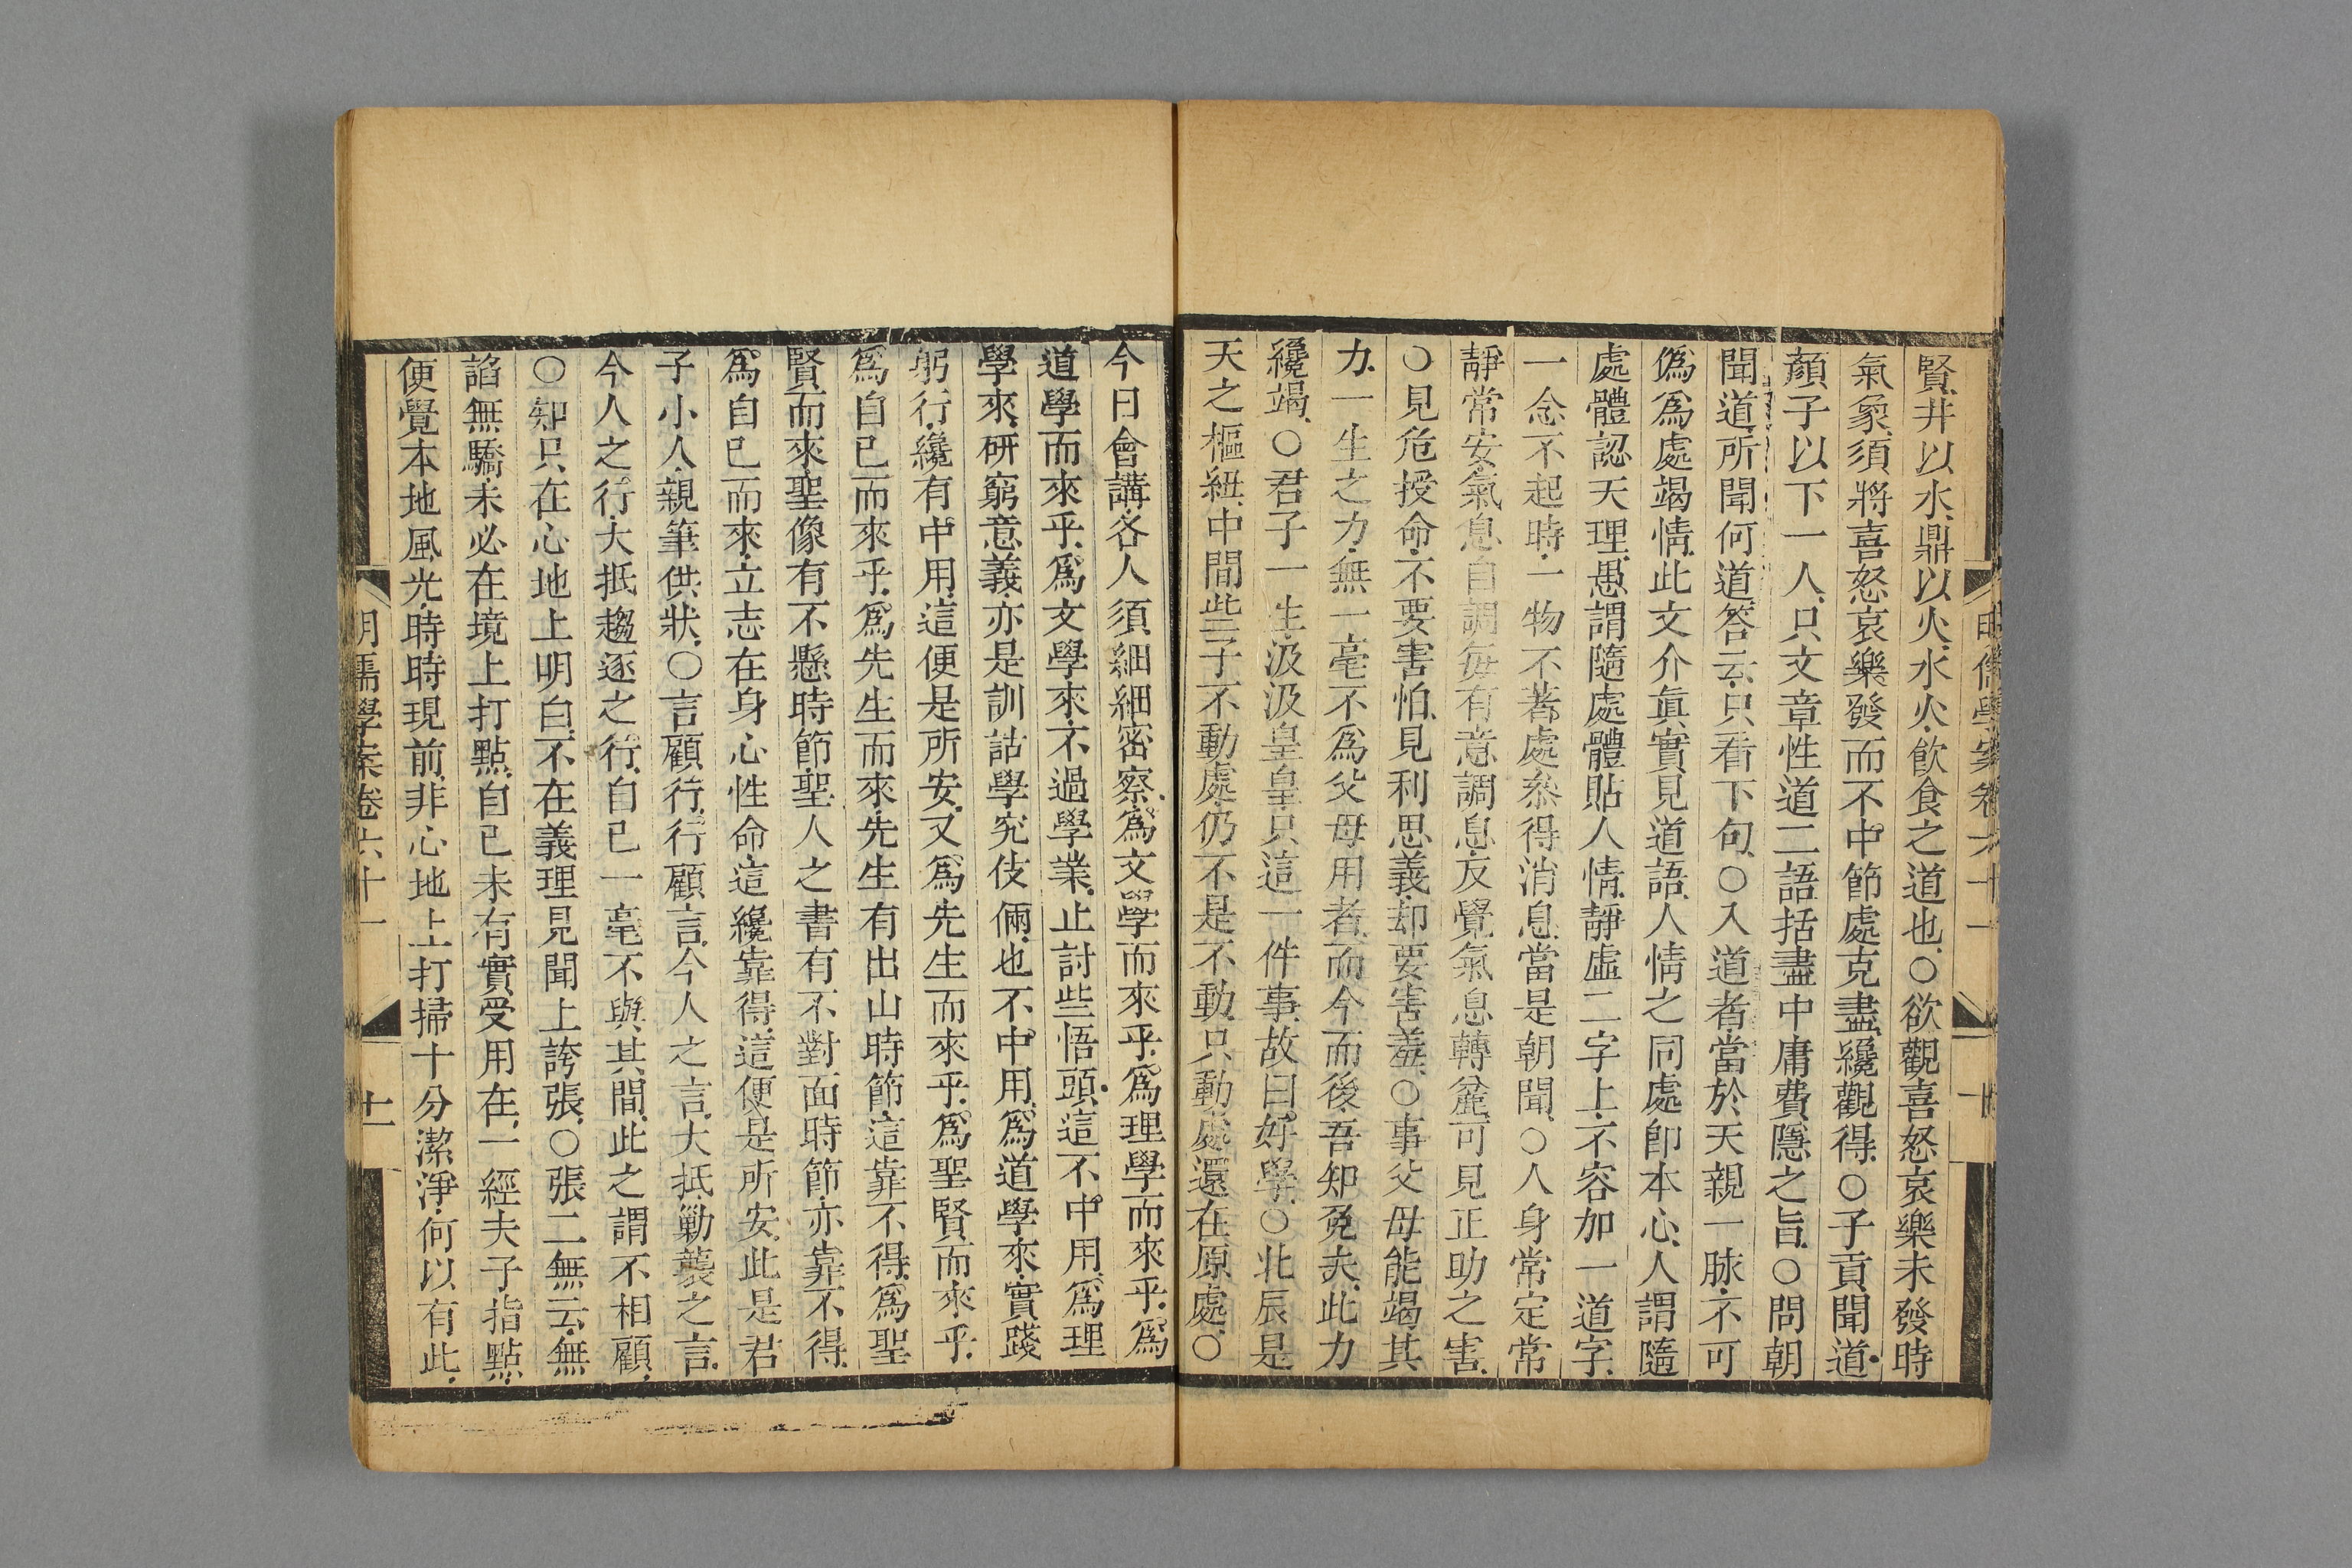 賢井以水鼎以火水火飲食之道也○欲觀喜怒哀樂未發時
氣象須將喜怒哀樂發而不中節處克盡纔觀得○子貢聞道
顏子以下一人只文章性道二語括盡中庸費隱之旨○問朝
聞道所聞何道答云只看下句○入道者當於天親一脉不可
僞爲處竭情此文介眞實見道語人情之同處卽本心人謂隨
處體認天理愚謂隨處體貼人情靜虛二字上不容加一道字
一念不起時一物不著處叅得消息當是朝聞○人身常定常
靜常安氣息自調每有意調息反覺氣息轉麄可見正助之害
○見危授命不要害怕見利思義却要害羞○事父母能竭其
力一生之力無一毫不爲父母用者而今而後吾知免夫此力
纔竭○君子一生汲汲皇皇只這一件事故曰好學○北辰是
天之樞紐中間些子不動處仍不是不動只動處還在原處○
今日會講各人須細細密察爲文學而來乎爲理學而來乎爲
道學而來乎爲文學來不過學業止討些悟頭這不中用爲理
學來研窮意義亦是訓詁學究伎倆也不中用爲道學來實踐
躬行纔有中用這便是所安又爲先生而來乎爲聖賢而來乎
爲自已而來乎爲先生而來先生有出山時節這靠不得爲聖
賢而來聖像有不懸時節聖人之書有不對面時節亦靠不得
爲自已而來立志在身心性命這纔靠得這便是所安此是君
子小人親筆供狀○言顧行行顧言今人之言大抵勦襲之言
今人之行大抵趨逐之行自已一毫不與其間此之謂不相顧
○知只在心地上明白不在義理見聞上誇張○張二無云無
諂無驕未必在境上打點自已未有實受用在一經夫子指點
便覺本地風光時時現前非心地上打掃十分潔淨何以有此
明儒學案卷六十一
十一